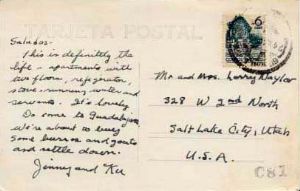 TARJETA POSTAL
Saludos-
This is definitely the
life - apartments with
two floors, refrigerator,
stove - running water and
servants. It's lovely.
Do come to Guadalajara
We're about to buy
some burros and goats
and settle down.
Jinny and
Mr and Mrs. Larry Naylor
328 W 2nd North
Salt Lake City, Utah
U.S.A.
C82